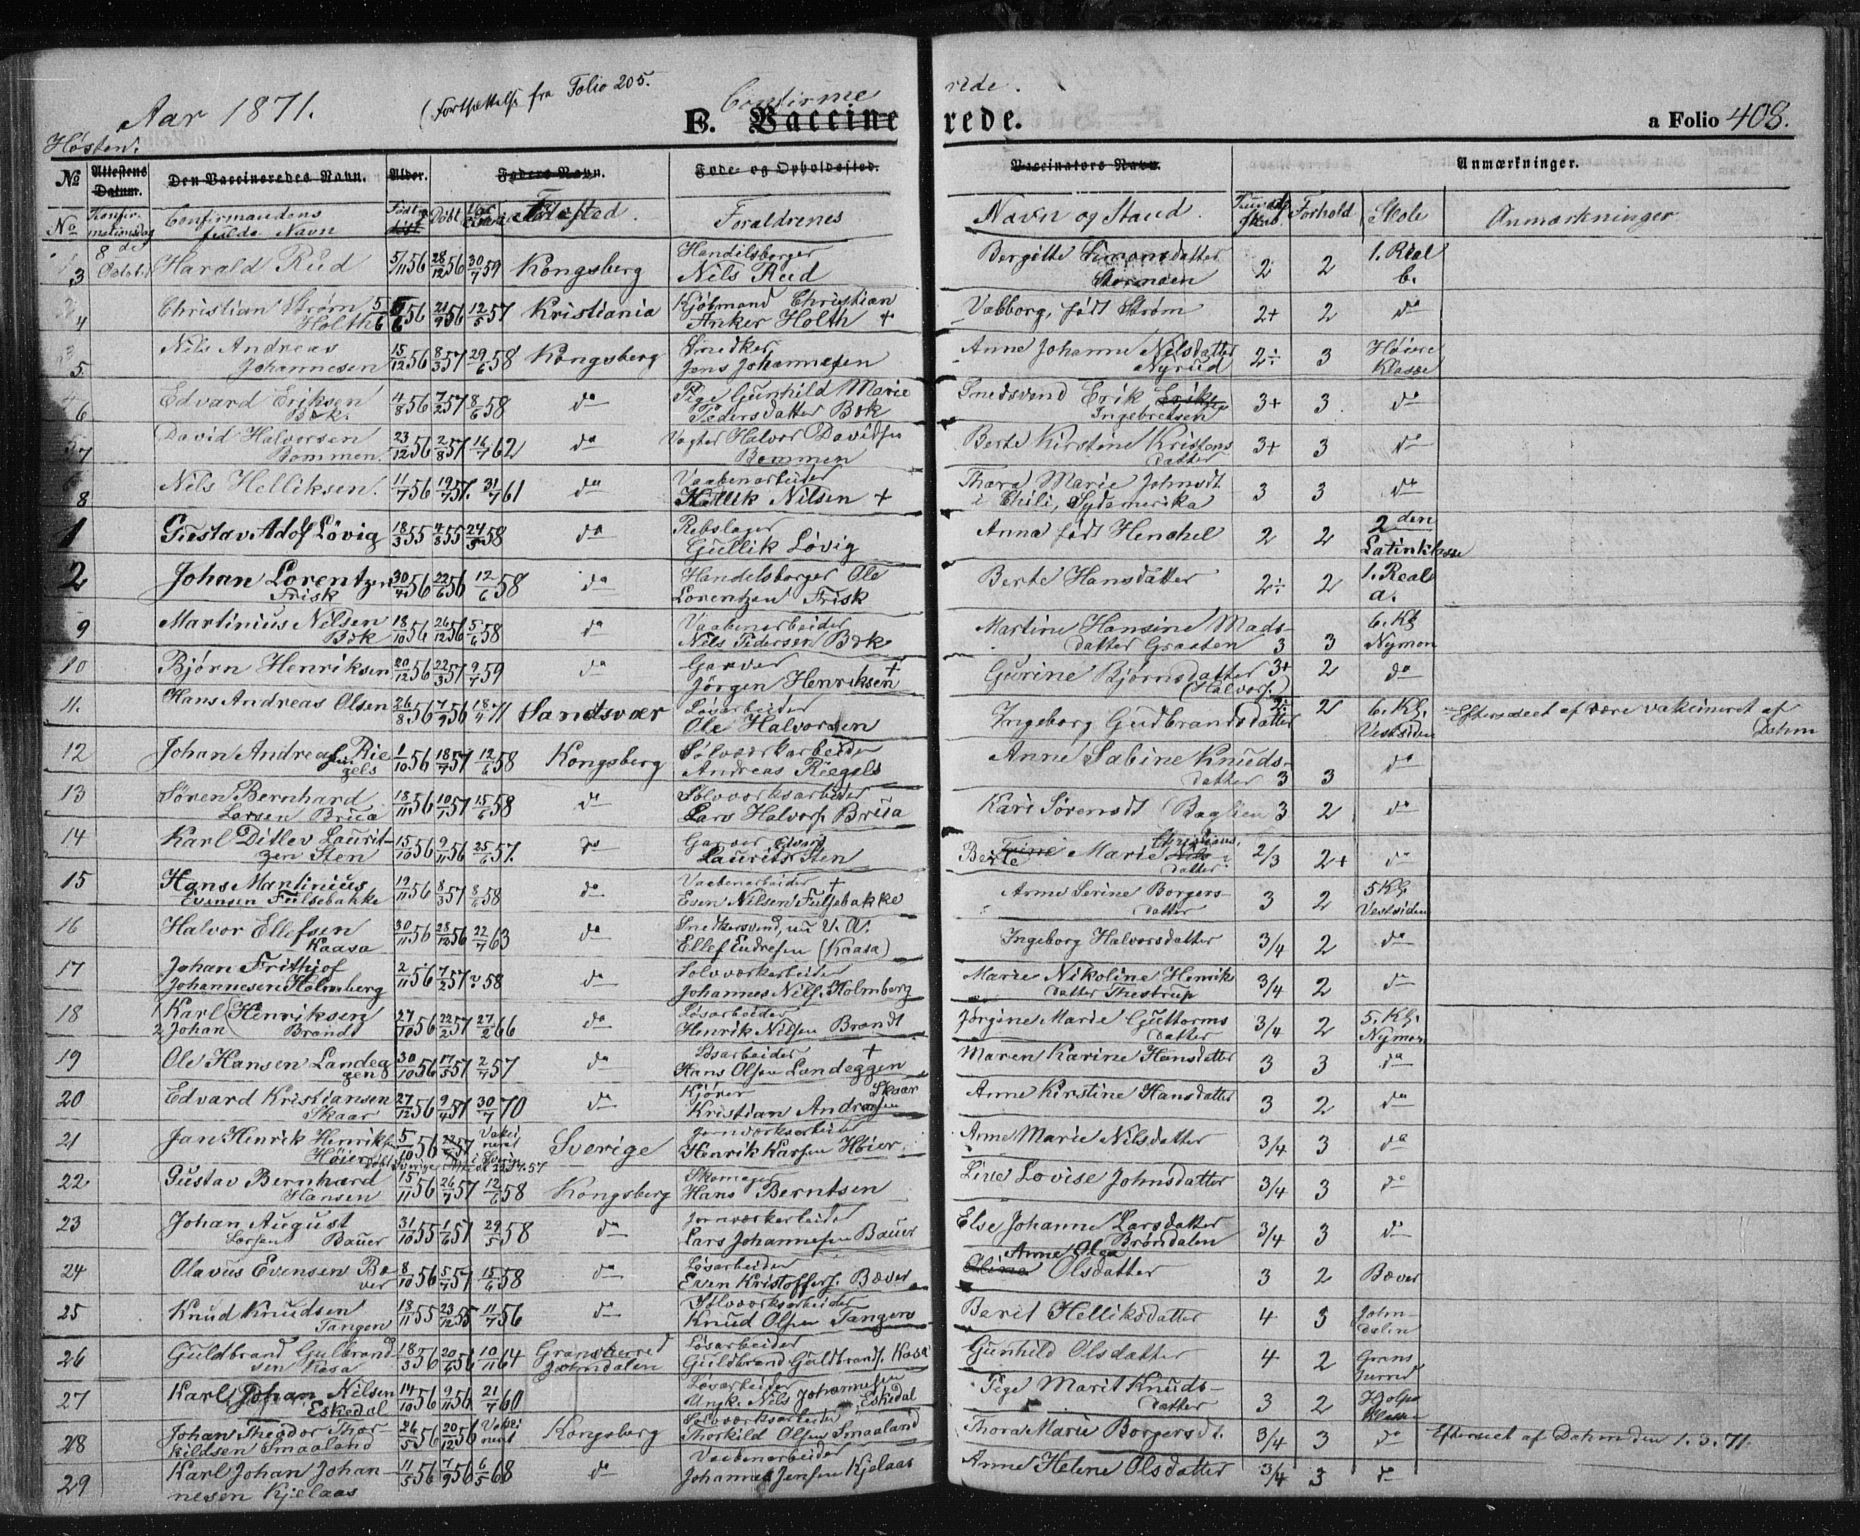 Aar 1871. (Fortsættelse fra Folio 205. Confirme rede.
E. Vaccine rede. a Folio 408.
Høsten.
No Attestens Datum. Den Vaccineredes Navn. Alder. Faders Navn. Føde- og Opholdssted. Vaccinators Navn. Anmærkninger.
No Confirmationsdag Confirmandens fulde Navn Født Døbt Fødested. Foraldrenes Navn og Stand Forhold Skole Anmærkninger
3 8de Octbr. Harald Rud 5/11 56 28/12 56 30/7 59 Kongsberg Handelsborger Nils Rud Bergitte Simonsdatter 2 2 1. Real b.
4 Christian Strøm Holth 5/6 56 21/9 56 12/5 57 Kristiania Kjøbmand Christian Anker Holth + Valborg, født Strøm 2+ 2 do
5. Nils Andreas Johannesen 15/12 56 8/3 57 29/6 58 Kongsberg Snedker Jens Johannesen Anne Johanne Nilsdatter Nyrud 2÷ 3 Høiere Klasse
6 Edvard Eriksen Bøk. 4/8 56 7/2 57 8/6 58 do Pige Gunhild Marie Pedersdatter Bøk Smedsvend Erik Ingebretsen 3+ 3 do
7 David Halvorsen Bommen. 23/12 56 2/8 57 16/7 62 do Vagter Halvor Davidsen Bommen Berte Kirstine Kristensdatter 3+ 3 do
8 Nils Helliksen. 11/7 56 19/7 57. 31/7 61 do Vaabenarbeider Hellik Nilsen + Thora Marie Johnsdt. i Chili, Sydamerika 3 3 do
1 Gustav Adolf Løvig 18/3 55 4/8 55 24/5 58 do Rebslager Gullik Løvig Anna født Henchel 2 2 2den Latinklasse
2 Johan Lorentzen Frisk 30/4 56 22/6 56 12/6 58 do Handelsborger Ole Lorentzen Frisk Berte Hansdatter 2÷ 2 1. Real a.
9 Martinius Nilsen Bøk 18/10 56 26/12 56 5/6 58 do Vaabenarbeider Nils Pedersen Bøk Martine Hansine Madsdatter Graaten 3 3 6. Kl Nymoen
10 Bjørn Henriksen 20/12 56 22/3 57 9/7 59 do Garver Jørgen Henriksen + Gurine Bjørnsdatter (Halvors.) 3+ 2 do
11. Hans Andreas Olsen 26/8 56 7/9 56 18/4 71 Sandsvær Løsarbeider Ole Halvorsen Ingeborg Gudbrandsdatter 2÷ 2 6. Kl. Vestsiden Efterseet af være vakcineret af Dahm
12 Johan Andreas Riegels 1/10 56 18/7 57 12/6 58 Kongsberg Sølvværksarbeider Andreas Riegels Anne Sabine Knudsdatter 3 3 do
13 Søren Bernhard Larsen Brua 18/11 56 10/7 57 15/6 58 do Sølvværksarbeider Lars Halvors. Brua Kari Sørensdt Baglien 3 2 do
14 Karl Ditlev Lauritzen Sten 15/10 56 9/11 56 25/6 57. do Garver Edvard Laurits Sten Berte Marie Christiansdatter 2/3 2+ do
15 Hans Martinius Evensen Fulsebakke 19/11 56 8/3 57 8/6 58 do Vaabenarbeider + Even Nilsen Fulsebakke Anne Serine Borgersdatter 3 2 5 Kl. Vestsiden
16 Halvor Ellefsen Kaasa 30/11 56 28/12 56 22/7 63 do Snedkersvend, nu V. A. Ellef Endresen (Kaasa) Ingeborg Halvorsdatter 3/4 2 do
17 Johan Frithjof Johannesen Holmberg 2/11 56 7/2 57 58 do Sølvværksarbeider Johannes Nils. Holmberg Marie Nikoline Henriksdatter Thestrup 3/4 2 do
18 1 Karl 2 Johan (Henriksen Brandt 27/10 56 22/2 57 27/2 66 do Løsarbeider Henrik Nilsen Brandt Jørgine Marie Guttormsdatter 3/4 2 5. Kl. Nymoen
19 Ole Hansen Landeggen 30/10 56 17/5 57 2/7 57 do Løsarbeider + Hans Olsen Landeggen Maren Karine Hansdatter 3 3 do
20 Edvard Kristiansen Skaar 27/12 56 9/4 57 30/7 70 do Kjører Kristian Andreasen Skaar Anne Kirstine Hansdatter 3 2 do
21 Jan Henrik Henriksen Høier 5/10 56 57 Vakcineret Sverige Jernværksarbeider Henrik Karsen Høier. Anne Marie Nilsdatter 3/4 3 do
22 Gustav Bernhard Hansen 15/11 56 26/7 57 12/6 58 Kongsberg Skomager Hans Berntsen Line Lovise Johnsdatter 3/4 3 do
23 Johan August Larsen Bauer 31/10 55 1/6 51 29/5 58 do Jernværksarbeider Lars Johannesen Bauer Else Johanne Larsdatter Brøndalen 3/4 3 do
24 Olavus Evensen Bæver 8/10 56 5/7 57 15/6 58 do Løsarbeider Even Kristoffers. Bæver Anne Olea Olsdatter 3 2 Bæver
25 Knud Knudsen Tangen 18/11 55 23/12 55 11/7 56 do Sølvværksarbeider Knud Olsen Tangen Berit Helliksdatter 4 3 Johndalen
26 Guldbrand Gulbrandsen Kasa 18/3 56 20/6 56 10/11 64 Gransherred Johndalen Løsarbeider Guldbrand Guldbrands. Kasa Gunhild Olsdatter 4 2 Gransherred
27 Karl Johan Nilsen Eskedal 14/10 56 9/11 56 21/7 60 Løsarbeider Ungk. Nils Johannesen Eskedal Pige Marit Knudsdatter 3 2 Hjelpeklasse
28 Johan Theodor Thorkildsen Smaaland 26/5 56 20/12 56 Vakcineret Kongsberg Sølvværksarbeider Thorkild Olsen Smaaland Thora Marie Borgersdt. 3/4 3 do Efterseet af Dahm den 1.3.71.
29 Karl Johan Johannesen Kjelaas 11/5 56 7/9 56 6/5 68 do Vaabenarbeider Johannes Jensen Kjelaas Anne Helene Olsdatter 3/4 3 do